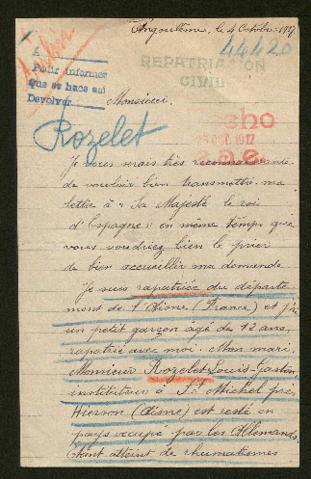 Angoulême, le 4 Octobre 1917
44420
A
Para informes
que se hace
Devolver
REPATRIACION
CIVIL
Monsieur.
25 OCT. 1917
Rozelet
Je vous serais très reconnaissante
de vouloir bien transmettre ma
lettre à "Sa Majesté le roi
d'Espagne" en même temps que
vous voudriez bien le prier
de bien accueillir ma demande
Je suis rapatriée du départe
ment de l'Aisne (France) et j'ai
un petit garçon agé de 12 ans,
rapatrié avec moi. Mon mari,
Monsieur Rozelet Louis-Gaston,
instituteur à St Michel près
Hirson (Aisne) est resté en
pays occupé par les Allemands.
étant atteint de rhumatismes